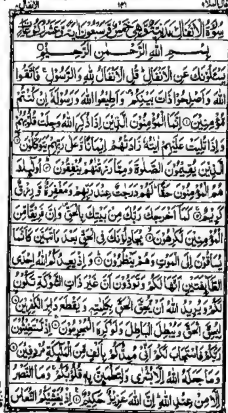 سورة الانفال مدنية وهي خمس وسبعون اية وعشر ركوعات
بِسْمِ اللّٰهِ الرَّحْمٰنِ الرَّحِيْمِ
يَسْـَٔلُوْنَكَ عَنِ الْاَنْفَالِ قُلِ الْاَنْفَالُ لِلّٰهِ وَالرَّسُوْلِ فَاتَّقُوا
اللّٰهَ وَاَصْلِحُوْا ذَاتَ بَيْنِكُمْ وَاَطِيْعُوا اللّٰهَ وَرَسُوْلَهٗٓ اِنْ كُنْتُمْ
مُّؤْمِنِيْنَ اِنَّمَا الْمُؤْمِنُوْنَ الَّذِيْنَ اِذَا ذُكِرَ اللّٰهُ وَجِلَتْ قُلُوْبُهُمْ
وَاِذَا تُلِيَتْ عَلَيْهِمْ اٰيٰتُهٗ زَادَتْهُمْ اِيْمَانًا وَّعَلٰى رَبِّهِمْ يَتَوَكَّلُوْنَ
الَّذِيْنَ يُقِيْمُوْنَ الصَّلٰوةَ وَمِمَّا رَزَقْنٰهُمْ يُنْفِقُوْنَ اُولٰٓئِكَ
هُمُ الْمُؤْمِنُوْنَ حَقًّا لَهُمْ دَرَجٰتٌ عِنْدَ رَبِّهِمْ وَمَغْفِرَةٌ وَّرِزْقٌ
كَرِيْمٌ كَمَآ اَخْرَجَكَ رَبُّكَ مِنْ بَيْتِكَ بِالْحَقِّ وَاِنَّ فَرِيْقًا مِّنَ
الْمُؤْمِنِيْنَ لَكٰرِهُوْنَ يُجَادِلُوْنَكَ فِي الْحَقِّ بَعْدَ مَا تَبَيَّنَ كَاَنَّمَا
يُسَاقُوْنَ اِلَى الْمَوْتِ وَهُمْ يَنْظُرُوْنَ وَاِذْ يَعِدُكُمُ اللّٰهُ اِحْدَى
الطَّآئِفَتَيْنِ اَنَّهَا لَكُمْ وَتَوَدُّوْنَ اَنَّ غَيْرَ ذَاتِ الشَّوْكَةِ تَكُوْنُ
لَكُمْ وَيُرِيْدُ اللّٰهُ اَنْ يُّحِقَّ الْحَقَّ بِكَلِمٰتِهٖ وَيَقْطَعَ دَابِرَ الْكٰفِرِيْنَ
لِيُحِقَّ الْحَقَّ وَيُبْطِلَ الْبَاطِلَ وَلَوْ كَرِهَ الْمُجْرِمُوْنَ اِذْ تَسْتَغِيْثُوْنَ
رَبَّكُمْ فَاسْتَجَابَ لَكُمْ اَنِّيْ مُمِدُّكُمْ بِاَلْفٍ مِّنَ الْمَلٰٓئِكَةِ مُرْدِفِيْنَ
وَمَا جَعَلَهُ اللّٰهُ اِلَّا بُشْرٰى وَلِتَطْمَئِنَّ بِهٖ قُلُوْبُكُمْ وَمَا النَّصْرُ
اِلَّا مِنْ عِنْدِ اللّٰهِ اِنَّ اللّٰهَ عَزِيْزٌ حَكِيْمٌ اِذْ يُغَشِّيْكُمُ النُّعَاسَ